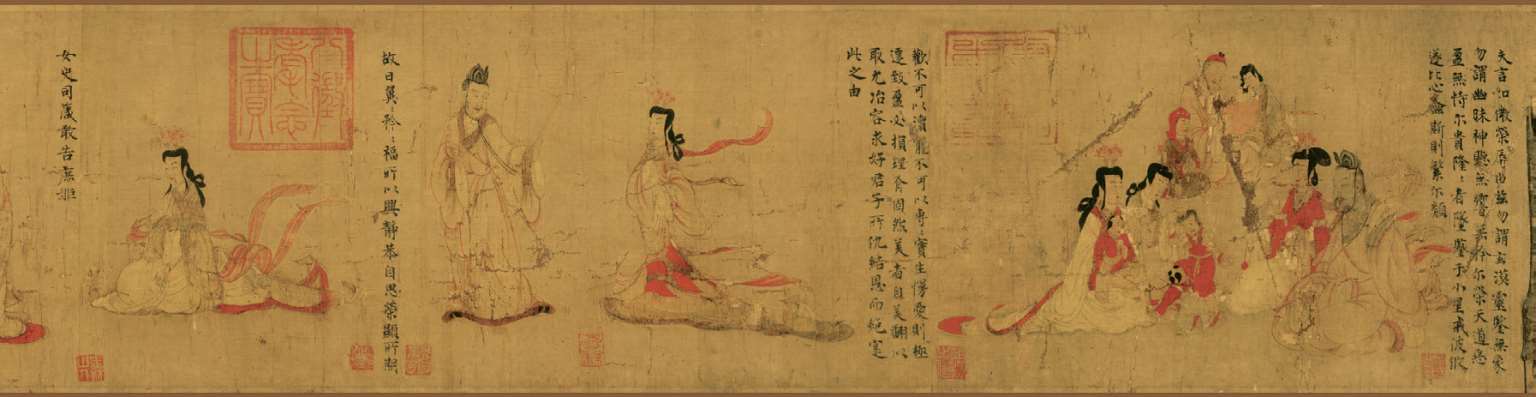 夫言如微榮辱由茲勿謂玄漠靈鑒無象
勿謂幽昧神聽無響無矜尔榮天道惡
盈無恃尔貴隆〻者墜鑒于小星戒彼攸
遂比心螽斯則繁尔類
歡不可以瀆寵不可以專〻實生慢愛則極
遷致盈必損理有固然美者自美翩以
取尤冶容求好君子所仇結恩而絕寔
此之由
故曰翼〻矜〻福所以興靜恭自思榮顯所期
八徵
耄念
之寶
女史司箴敢告庶姬